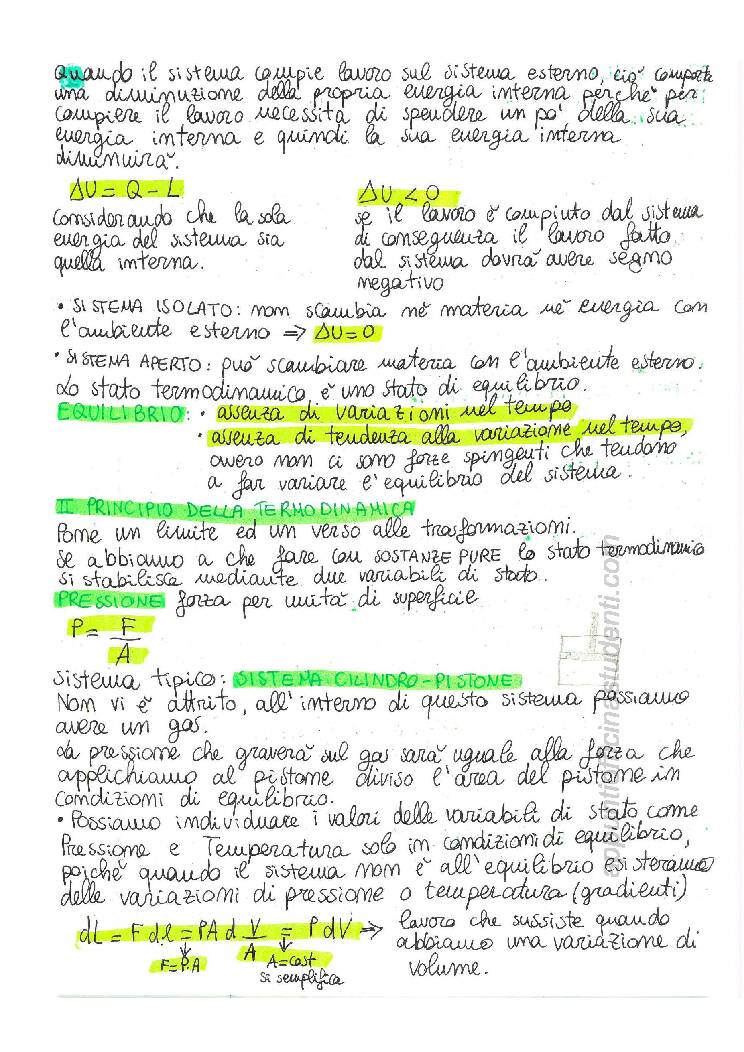 Quando il sistema compie lavoro sul sistema esterno, ciò comporta
una diminuzione della propria energia interna perché per
compiere il lavoro necessita di spendere un po' della sua
energia interna e quindi la sua energia interna
diminuirà.
ΔU = Q - L
considerando che la sola
energia del sistema sia
quella interna.
ΔU < 0
se il lavoro è compiuto dal sistema
di conseguenza il lavoro fatto
dal sistema dovrà avere segno
negativo
• SISTEMA ISOLATO: non scambia né materia né energia con
l'ambiente esterno => ΔU = 0
• SISTEMA APERTO: può scambiare materia con l'ambiente esterno.
Lo stato termodinamico, è uno stato di equilibrio.
EQUILIBRIO: • assenza di variazioni nel tempo
• assenza di tendenza alla variazione nel tempo,
ovvero non ci sono forze spingenti che tendono
a far variare l'equilibrio del sistema.
II PRINCIPIO DELLA TERMODINAMICA
Pone un limite ed un verso alle trasformazioni.
Se abbiamo a che fare con SOSTANZE PURE lo stato termodinamico
si stabilisce mediante due variabili di stato.
PRESSIONE forza per unità di superficie
P = F/A
Sistema tipico: SISTEMA CILINDRO-PISTONE
Non vi è attrito, all'interno di questo sistema possiamo
avere un gas.
La pressione che graverà sul gas sarà uguale alla forza che
applichiamo al pistone diviso l'area del pistone in
condizioni di equilibrio.
• Possiamo individuare i valori delle variabili di stato come
Pressione e Temperatura solo in condizioni di equilibrio,
poiché quando il sistema non è all'equilibrio esisteranno
delle variazioni di pressione o temperatura (gradienti)
dL = F dl = PA d V/A = P dV =>
F=P.A
A=cost
si semplifica
lavoro che sussiste quando
abbiamo una variazione di
volume.